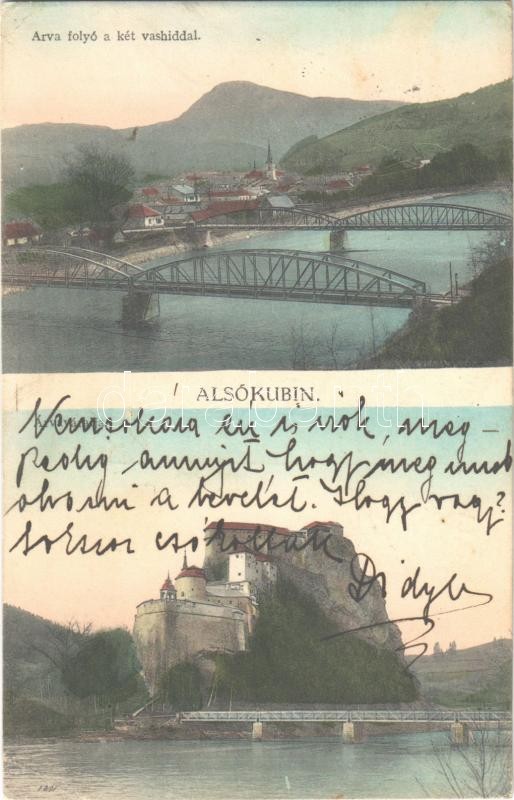 Arva folyó a két vashiddal.
ALSÓKUBIN.
Nemsokára én is irok, meg-
pedig annyit, hogy meg unod
olvasni a levelet. Hogy vagy?
Sokszor csókollak